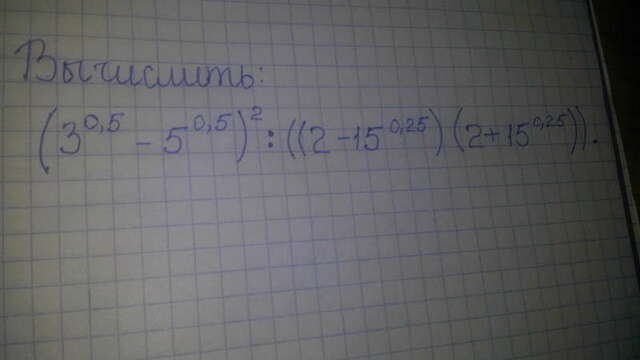 Вычислить:
(3^0,5 - 5^0,5)^2 : ((2 - 15^0,25)(2 + 15^0,25)).